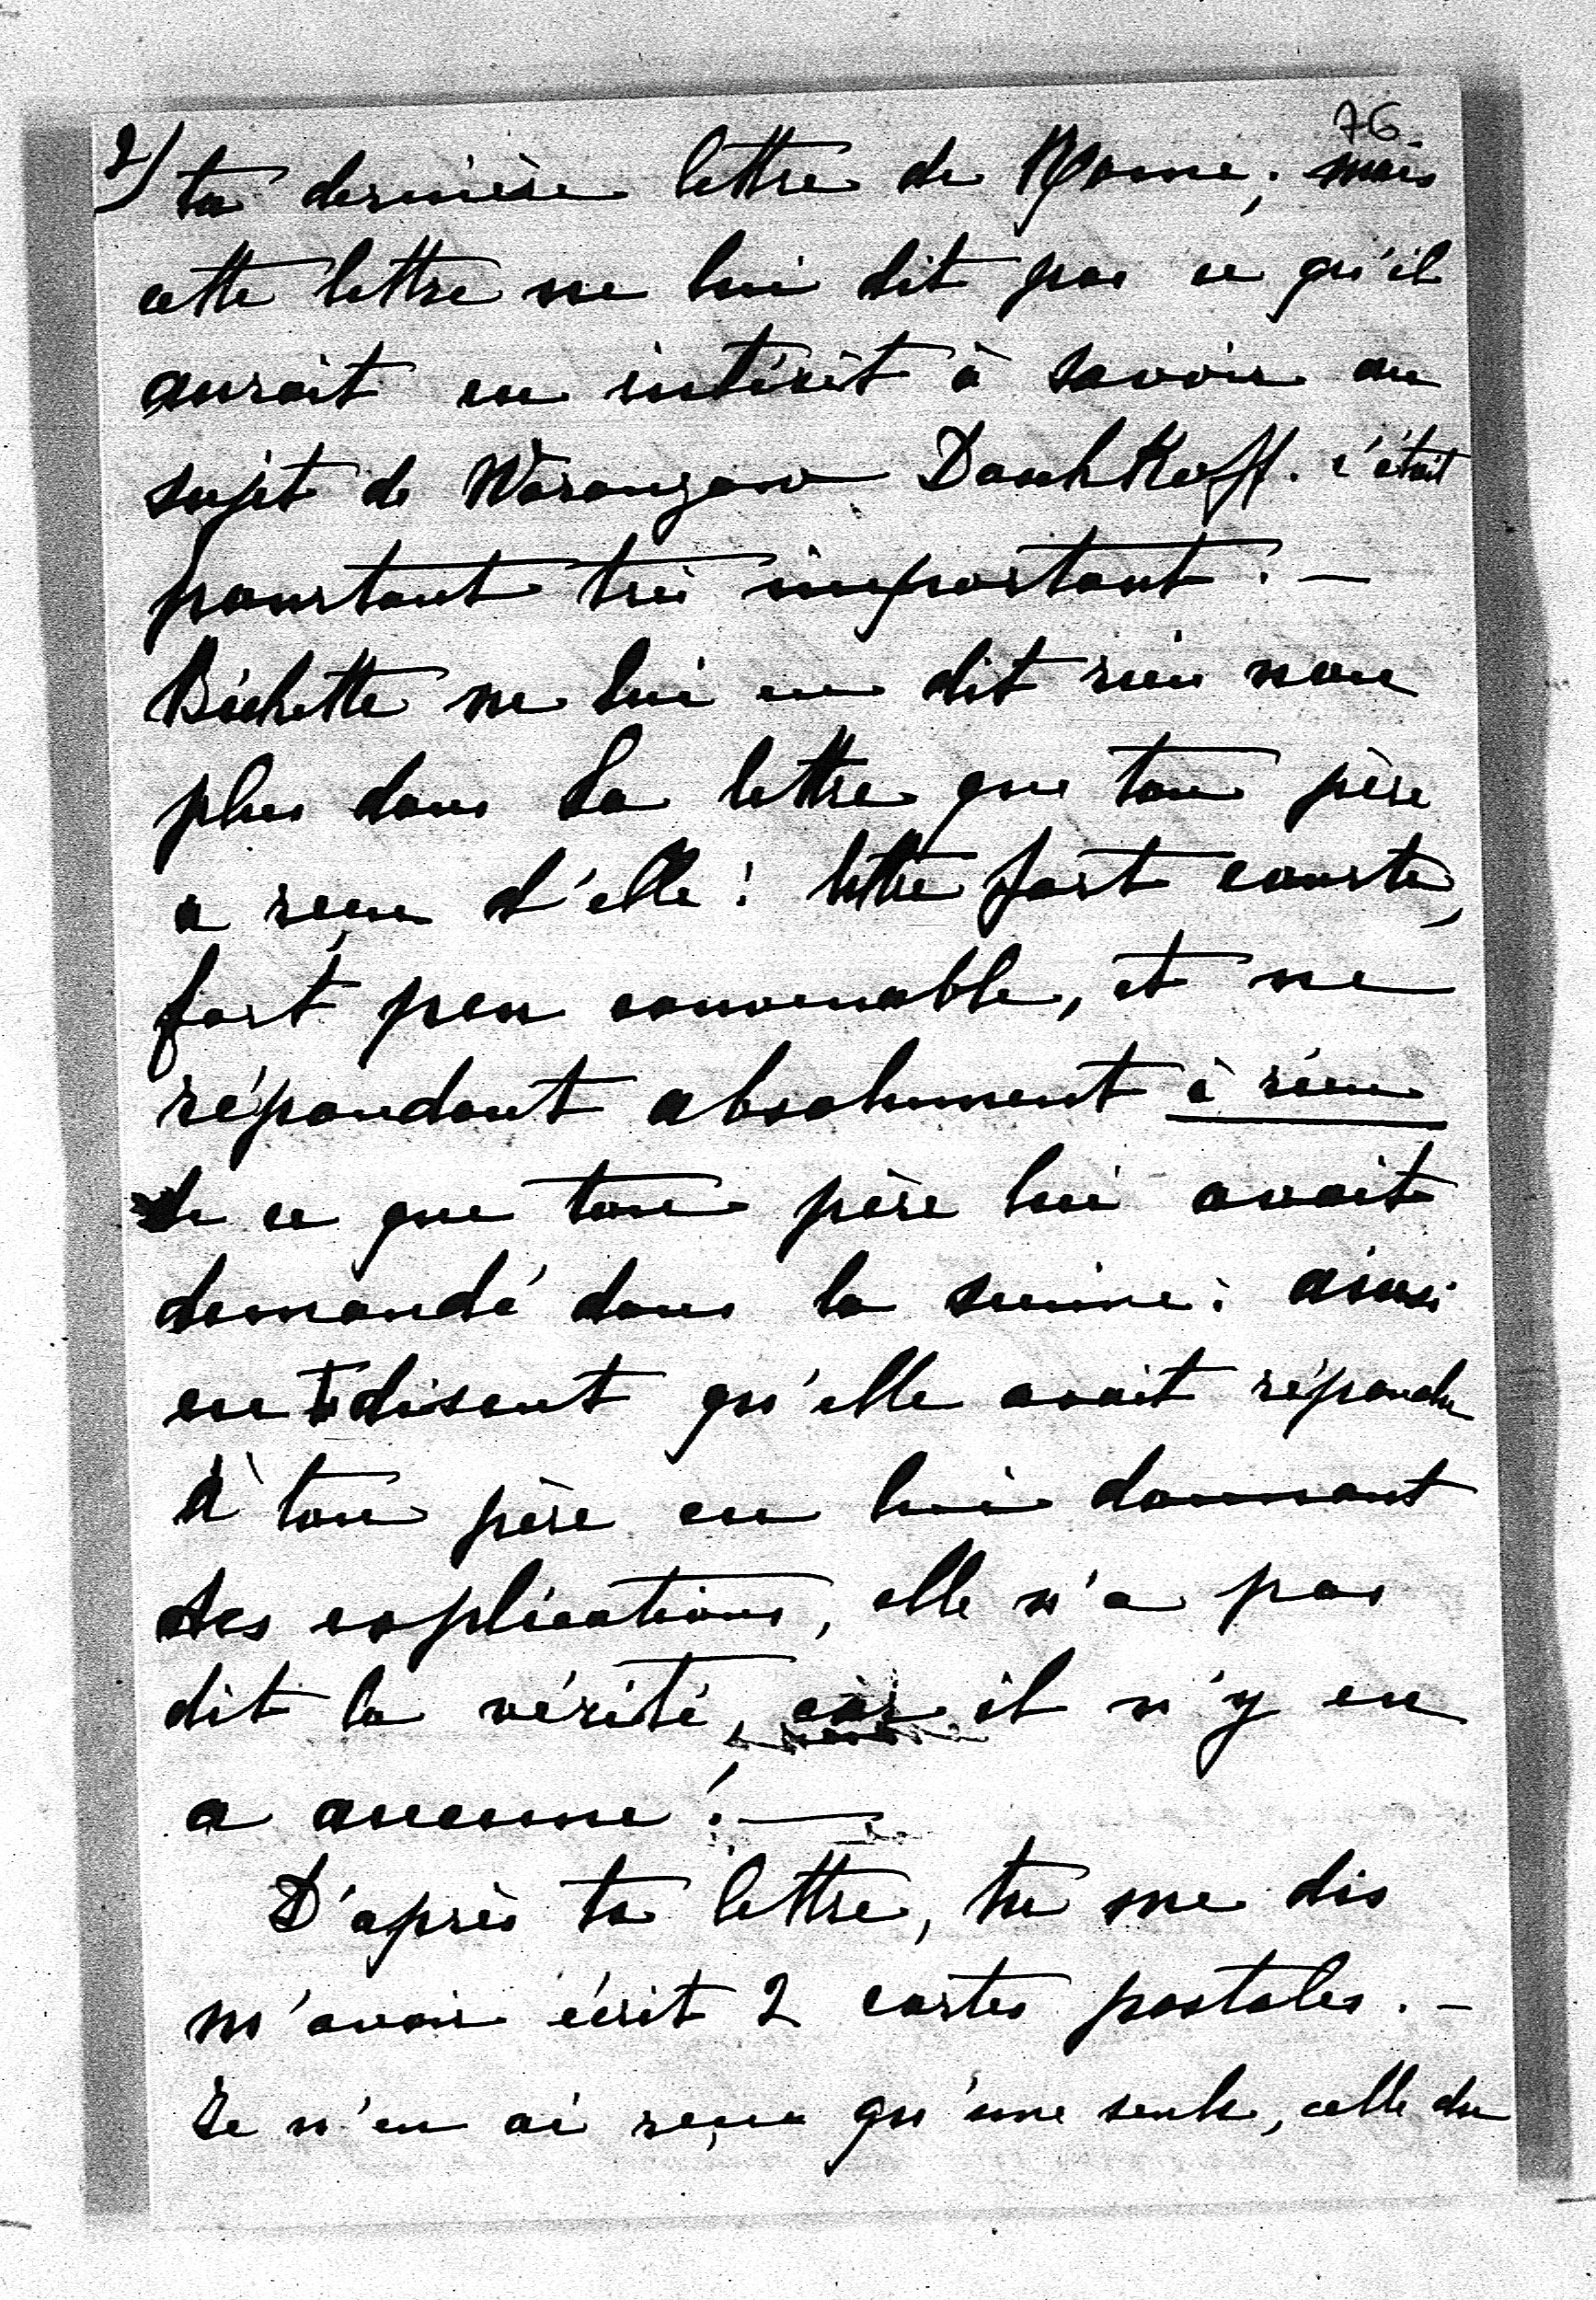 76
2) ta dernière lettre de Rome; mais
cette lettre ne lui dit pas ce qu'il
aurait eu intérêt à savoir au
sujet de Woronzow Dachkoff. c'était
pourtant très important. —
Bichette ne lui en dit rien non
plus dans la lettre que ton père
a reçue d'elle: lettre fort courte,
fort peu convenable, et ne
répondant absolument à rien
de ce que ton père lui avait
demandé dans la sienne: ainsi
en te disant qu'elle avait répondu
à ton père en lui donnant
des explications, elle n'a pas
dit la vérité, car il n'y en
a aucune! —
D'après ta lettre, tu me dis
m'avoir écrit 2 cartes postales. —
Je n'en ai reçu qu'une seule, celle du